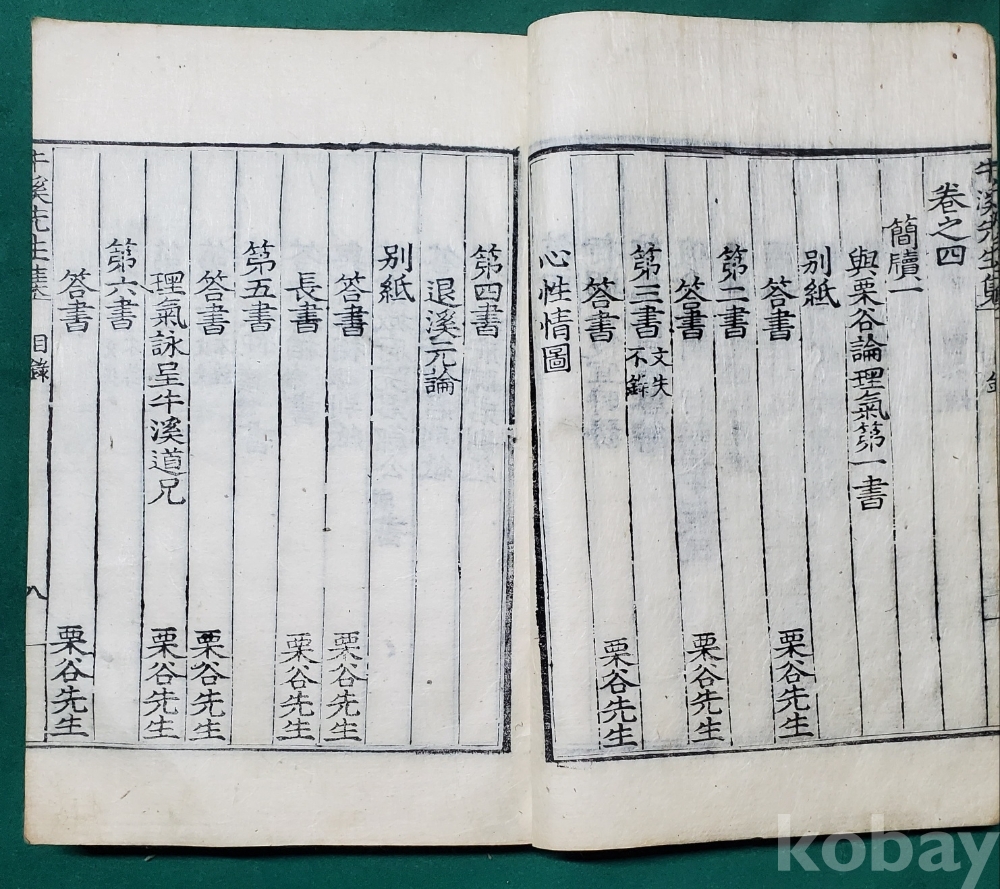 牛溪先生集
卷之四
簡牘一
與栗谷論理氣第一書
別紙
答書 栗谷先生
第二書
答書 栗谷先生
第三書 文失不錄
答書 栗谷先生
心性情圖
第四書
退溪元論
別紙
答書 栗谷先生
長書 栗谷先生
第五書
答書 栗谷先生
理氣詠呈牛溪道兄 栗谷先生
第六書
答書 栗谷先生
牛溪先生集 目錄 八
kobay